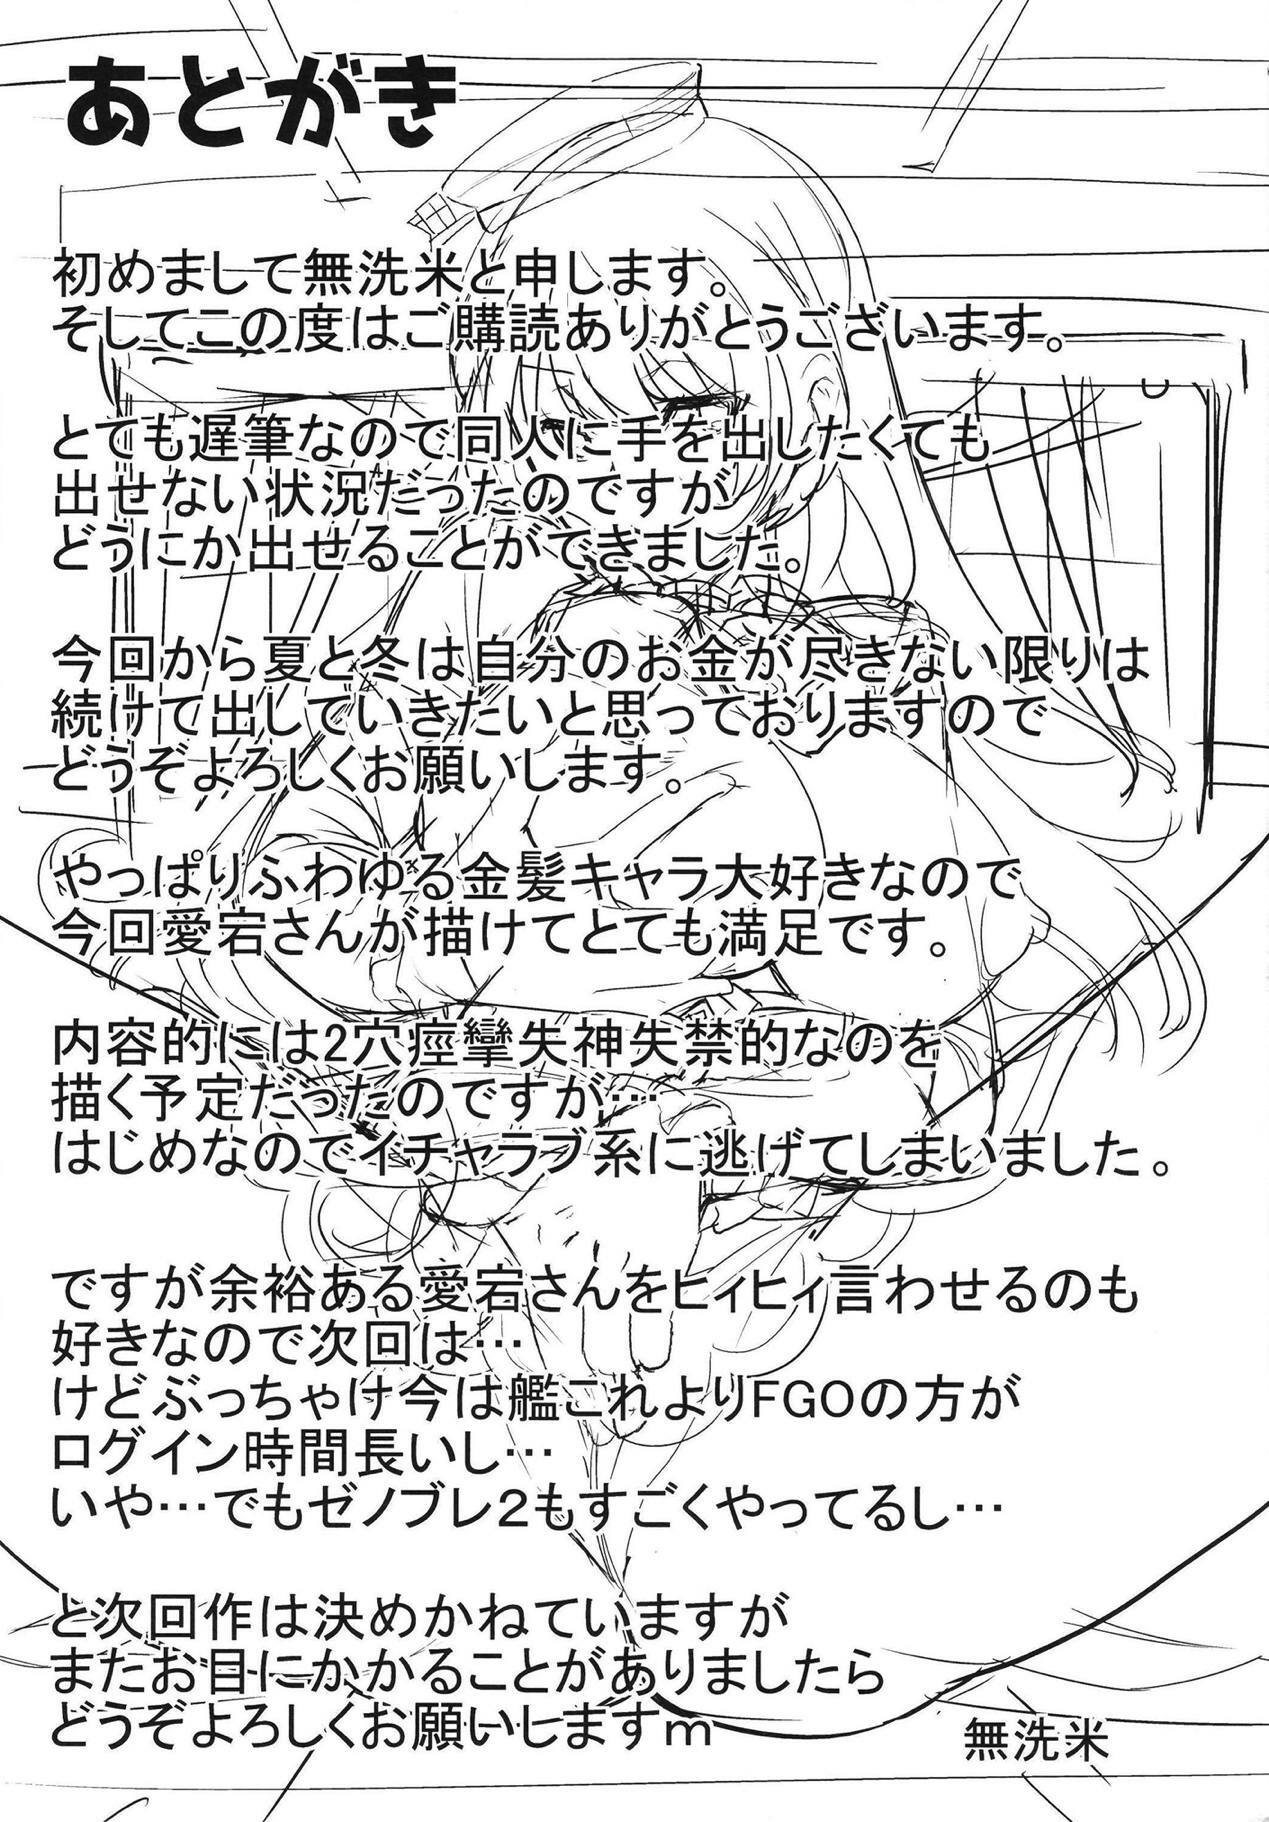 あとがき
初めまして無洗米と申します。
そしてこの度はご購読ありがとうございます。
とても遅筆なので同人に手を出したくても
出せない状況だったのですが
どうにか出せることができました。
今回から夏と冬は自分のお金が尽きない限りは
続けて出していきたいと思っておりますので
どうぞよろしくお願いします。
やっぱりふわゆる金髪キャラ大好きなので
今回愛宕さんが描けてとても満足です。
内容的には2穴痙攣失神失禁的なのを
描く予定だったのですが…
はじめなのでイチャラブ系に逃げてしまいました。
ですが余裕ある愛宕さんをヒィヒィ言わせるのも
好きなので次回は…
けどぶっちゃけ今は艦これよりFGOの方が
ログイン時間長いし…
いや…でもゼノブレ２もすごくやってるし…
と次回作は決めかねていますが
またお目にかかることがありましたら
どうぞよろしくお願いしますｍ
無洗米